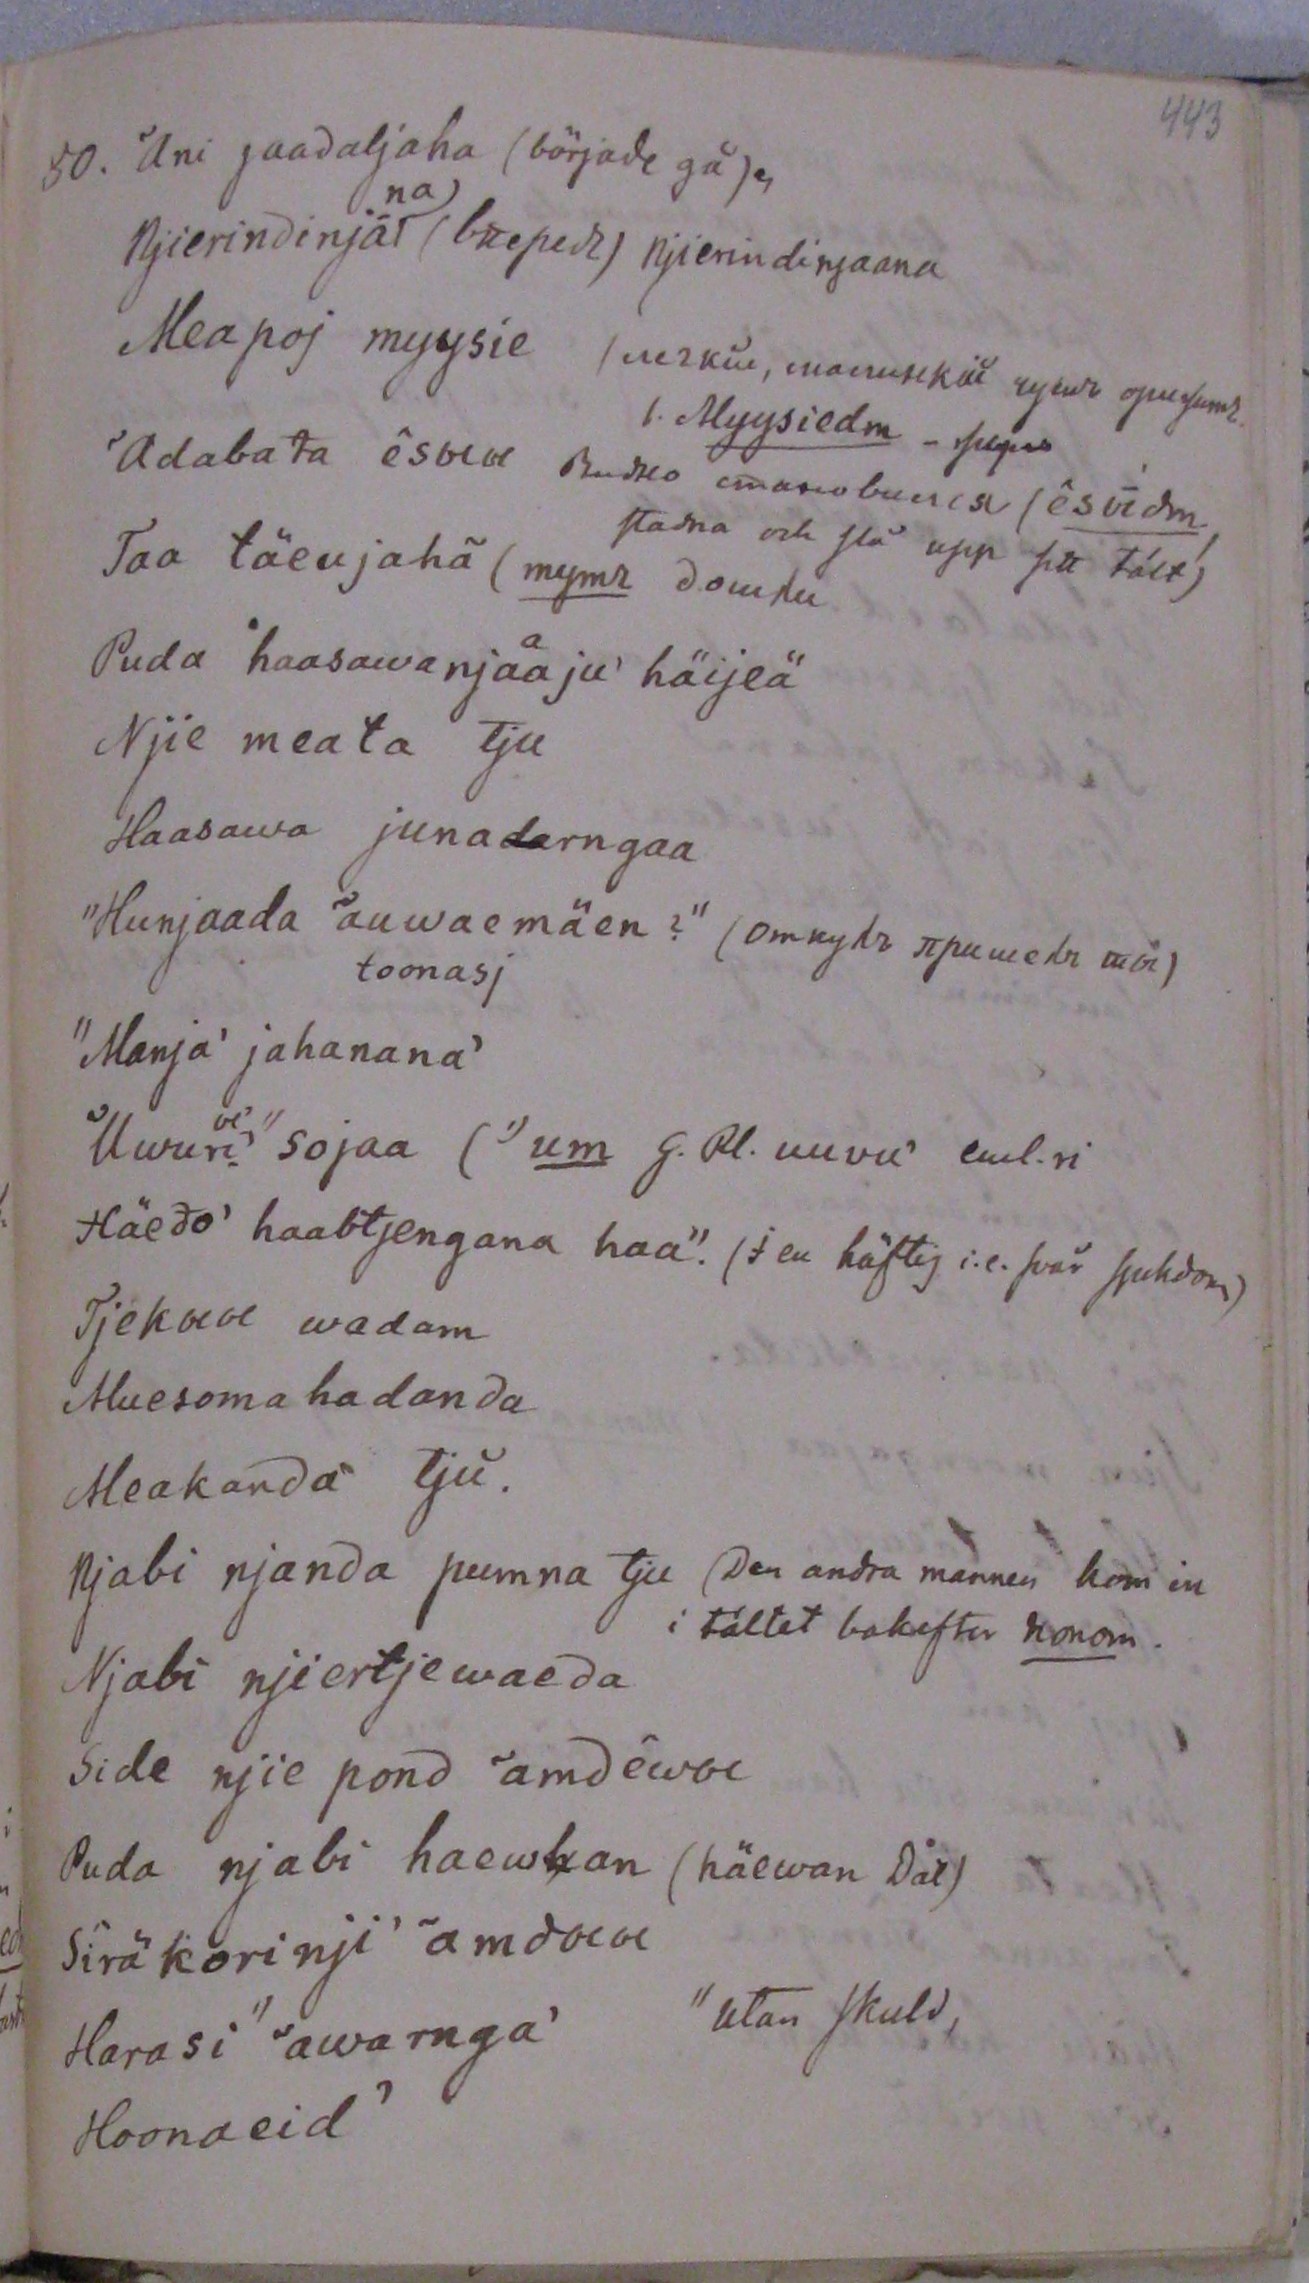 443
50. Ũni jaadaljaha (började gå),
na
Njierindinjäî (впередъ) Njierindinjaana
Meapoj myysie (легкій, маминькій чумъ
1. Myysiedm
Ũdabata êsɯɯ Видно становился (êsɯidm
stadna och slå upp sitt tält)
Taa täeujahã (тутъ
Puda haasawanjaaju' häijeä
Njie meata tju
Haasawa junadarngaa
"Hunjaada ãuwaemäen?" (откудъ пришедъ ты)
toonasj
"Manja' jahanana'
Ũwuri" sojaa ("um G. Pl. uuvu' encl. ri
Häedo' haabtjengana haa". (i en häftig i.e. svår sjukdom)
Tjekɯɯ wadam
Muesomahadanda
Meakanda tjũ.
Njabi njanda pumna tju (Den andra mannen kom in
i tältet bakefter honom.
Njabi njiertjewaeda
Side njie pond ãmdêwɯ
Puda njabi haewhan (häewan Dat)
Sîräkorinji' ãmdɯɯ
Harasi" ãwarnga' "utan skuld,
Hoonaeid'